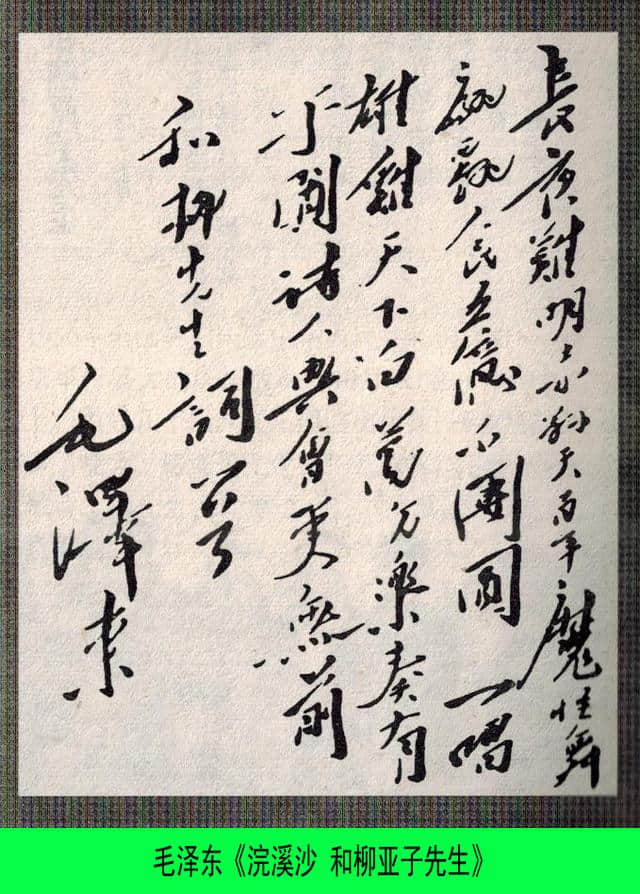 長夜難明赤縣天百年魔怪舞
翩躚人民五億不團圓一唱
雄雞天下白萬方樂奏有
于闐詩人興會更無前
和柳先生詞
毛澤東
毛泽东《浣溪沙 和柳亚子先生》